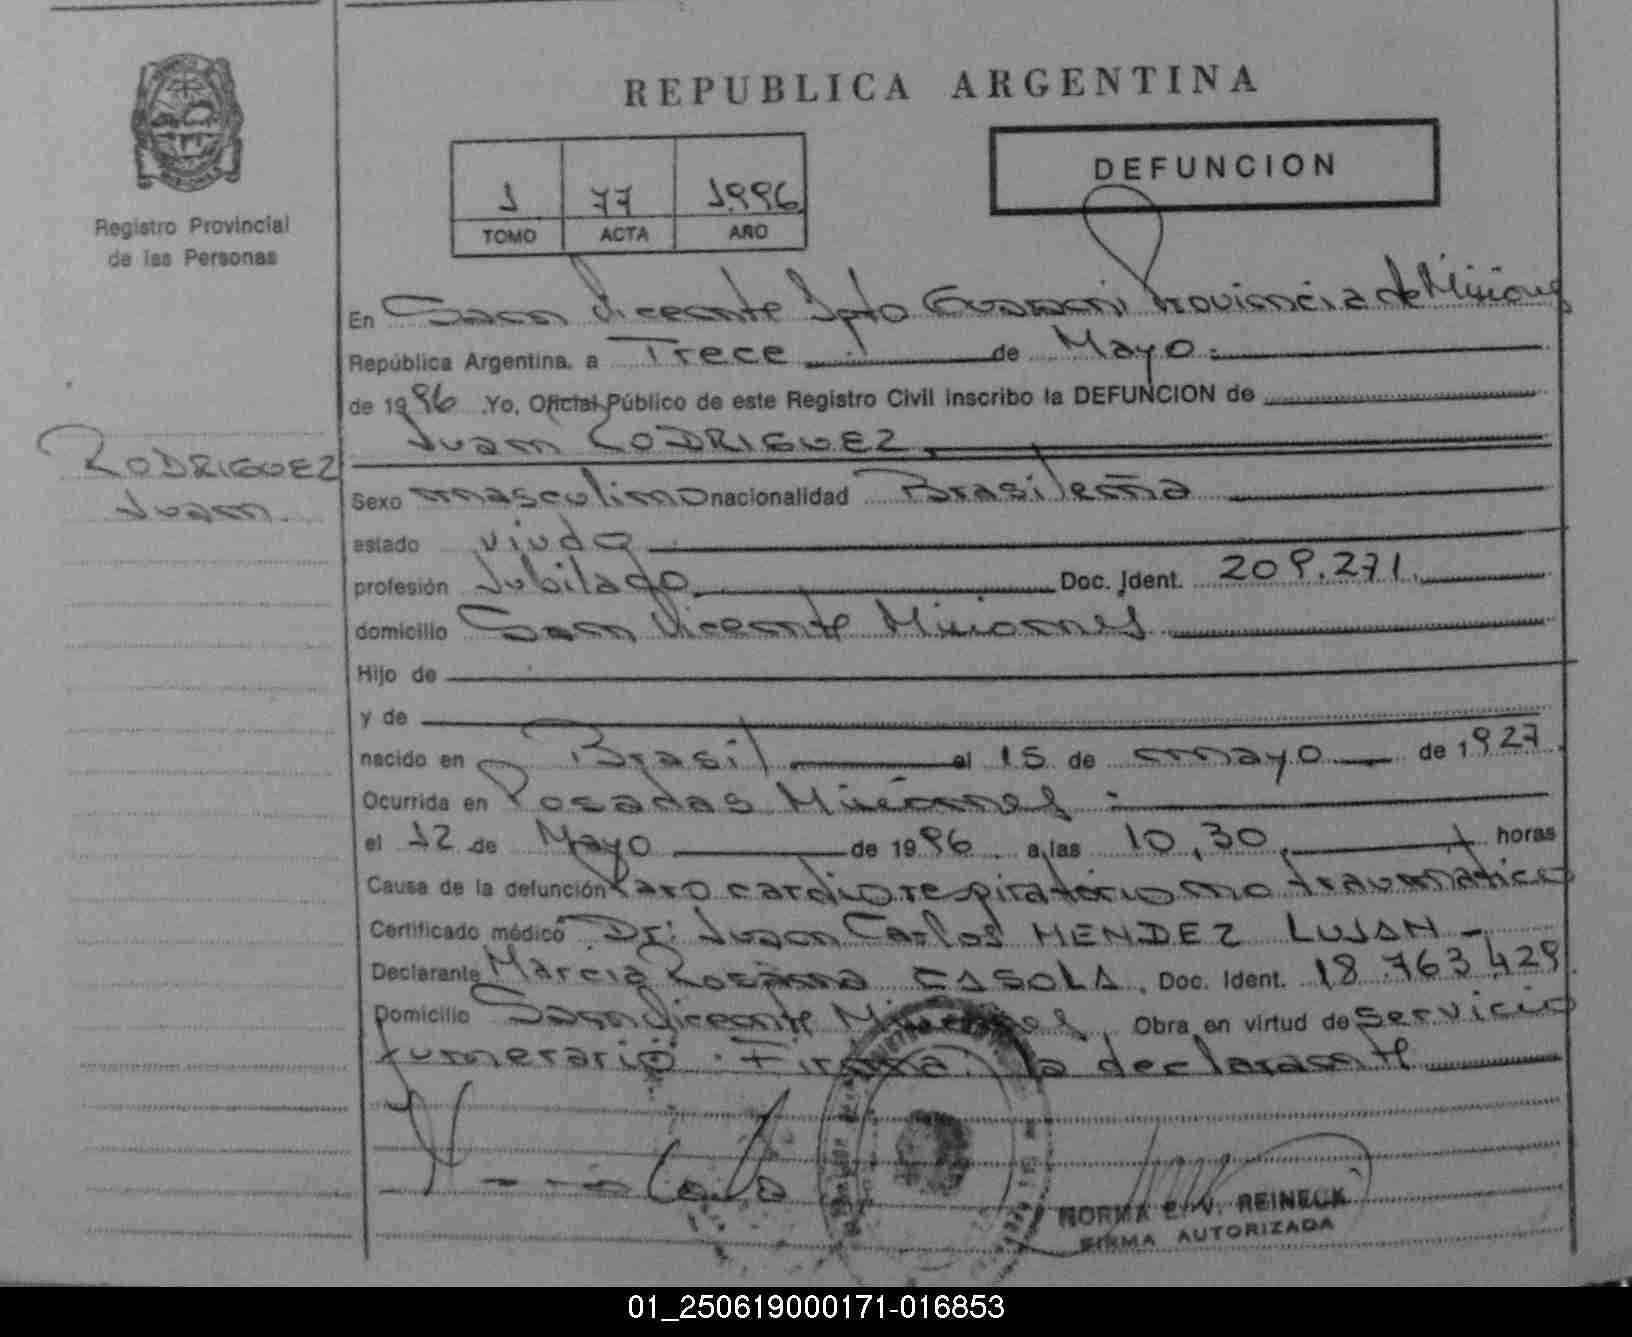 REPUBLICA ARGENTINA
DEFUNCION
1 77 1996
TOMO ACTA AÑO
Registro Provincial
de las Personas
RODRIGUEZ
Juan
En San Vicente Dpto Guarani Provincia de Misiones
República Argentina, a Trece de Mayo
de 1996 .Yo, Oficial Público de este Registro Civil inscribo la DEFUNCION de
Juan RODRIGUEZ
Sexo masculino nacionalidad Brasileña
estado viudo
profesión Jubilado Doc. Ident. 209.271.
domicilio San Vicente Misiones
Hijo de
y de
nacido en Brasil el 15 de mayo de 1927
Ocurrida en Posadas Misiones
el 12 de Mayo de 1996 a las 10,30 horas
Causa de la defunción Paro cardiorespiratorio no traumatico
Certificado médico Dr. Juan Carlos MENDEZ LUJAN -
Declarante Marcia Rosana CASOLA, Doc. Ident. 18.763.429
Domicilio San Vicente Misiones, Obra en virtud de servicio
funerario. Firma: la declarante
NORMA E. V. REINECK
FIRMA AUTORIZADA
01_250619000171-016853